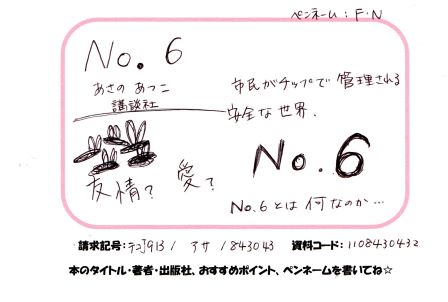 ペンネーム：F・N
No. 6
あさの あつこ
講談社
市民がチップで管理される
安全な世界.
友情? 愛?
No. 6
No.6とは何なのか…
請求記号: テコ913 / アサ / 843043 資料コード: 1108430432
本のタイトル・著者・出版社、おすすめポイント、ペンネームを書いてね☆